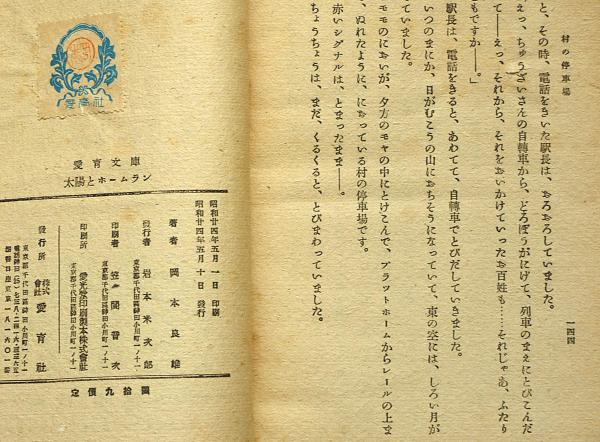 村の停車場
一四四
と、その時、電話をきいた駅長は、おろおろしていました。
えっ、ちゅうざいさんの自轉車から、どろぼうがにげて、列車のまえにとびこんだ
て――えっ、それから、それをおいかけていったお百姓も……それじゃあ、ふたり
もですか――。」
駅長は、電話をきると、あわてて、自轉車でとびだしていきました。
いつのまにか、日がむこうの山におちそうになっていて、東の空には、しろい月が
ていました。
モモのにおいが、夕方のモヤの中にとけこんで、プラットホームからレールの上ま
、ぬれたように、におっている村の停車場です。
赤いシグナルは、とまったまま――。
ちょうちょうは、まだ、くるくると、とびまわっていました。
愛育社
愛育文庫
太陽とホームラン
昭和廿四年五月一日 印刷
昭和廿四年五月十日 發行
著者 岡本良雄
發行者 岩本米次郎
東京都千代田區神田小川町一ノ十一
印刷者 笠間晋次
東京都千代田區神田小川町一ノ十一
印刷所 愛光堂印刷製本株式會社
東京都千代田區神田小川町一ノ十一
發行所 株式會社 愛育社
東京都千代田區神田小川町一ノ十一
定價九拾圓